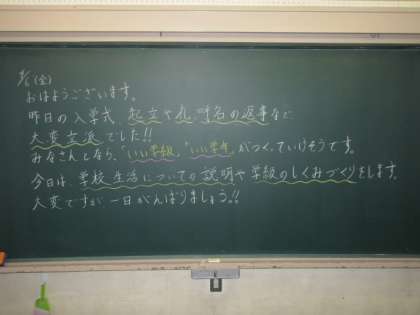 (金)
おはようございます。
昨日の入学式、起立や礼、呼名の返事など
大変立派でした!!
みなさんとなら、"いい学級" "いい学年"がつくっていけそうです。
今日は、学校生活についての説明や学級のしくみづくりをします。
大変ですが一日がんばりましょう。!!